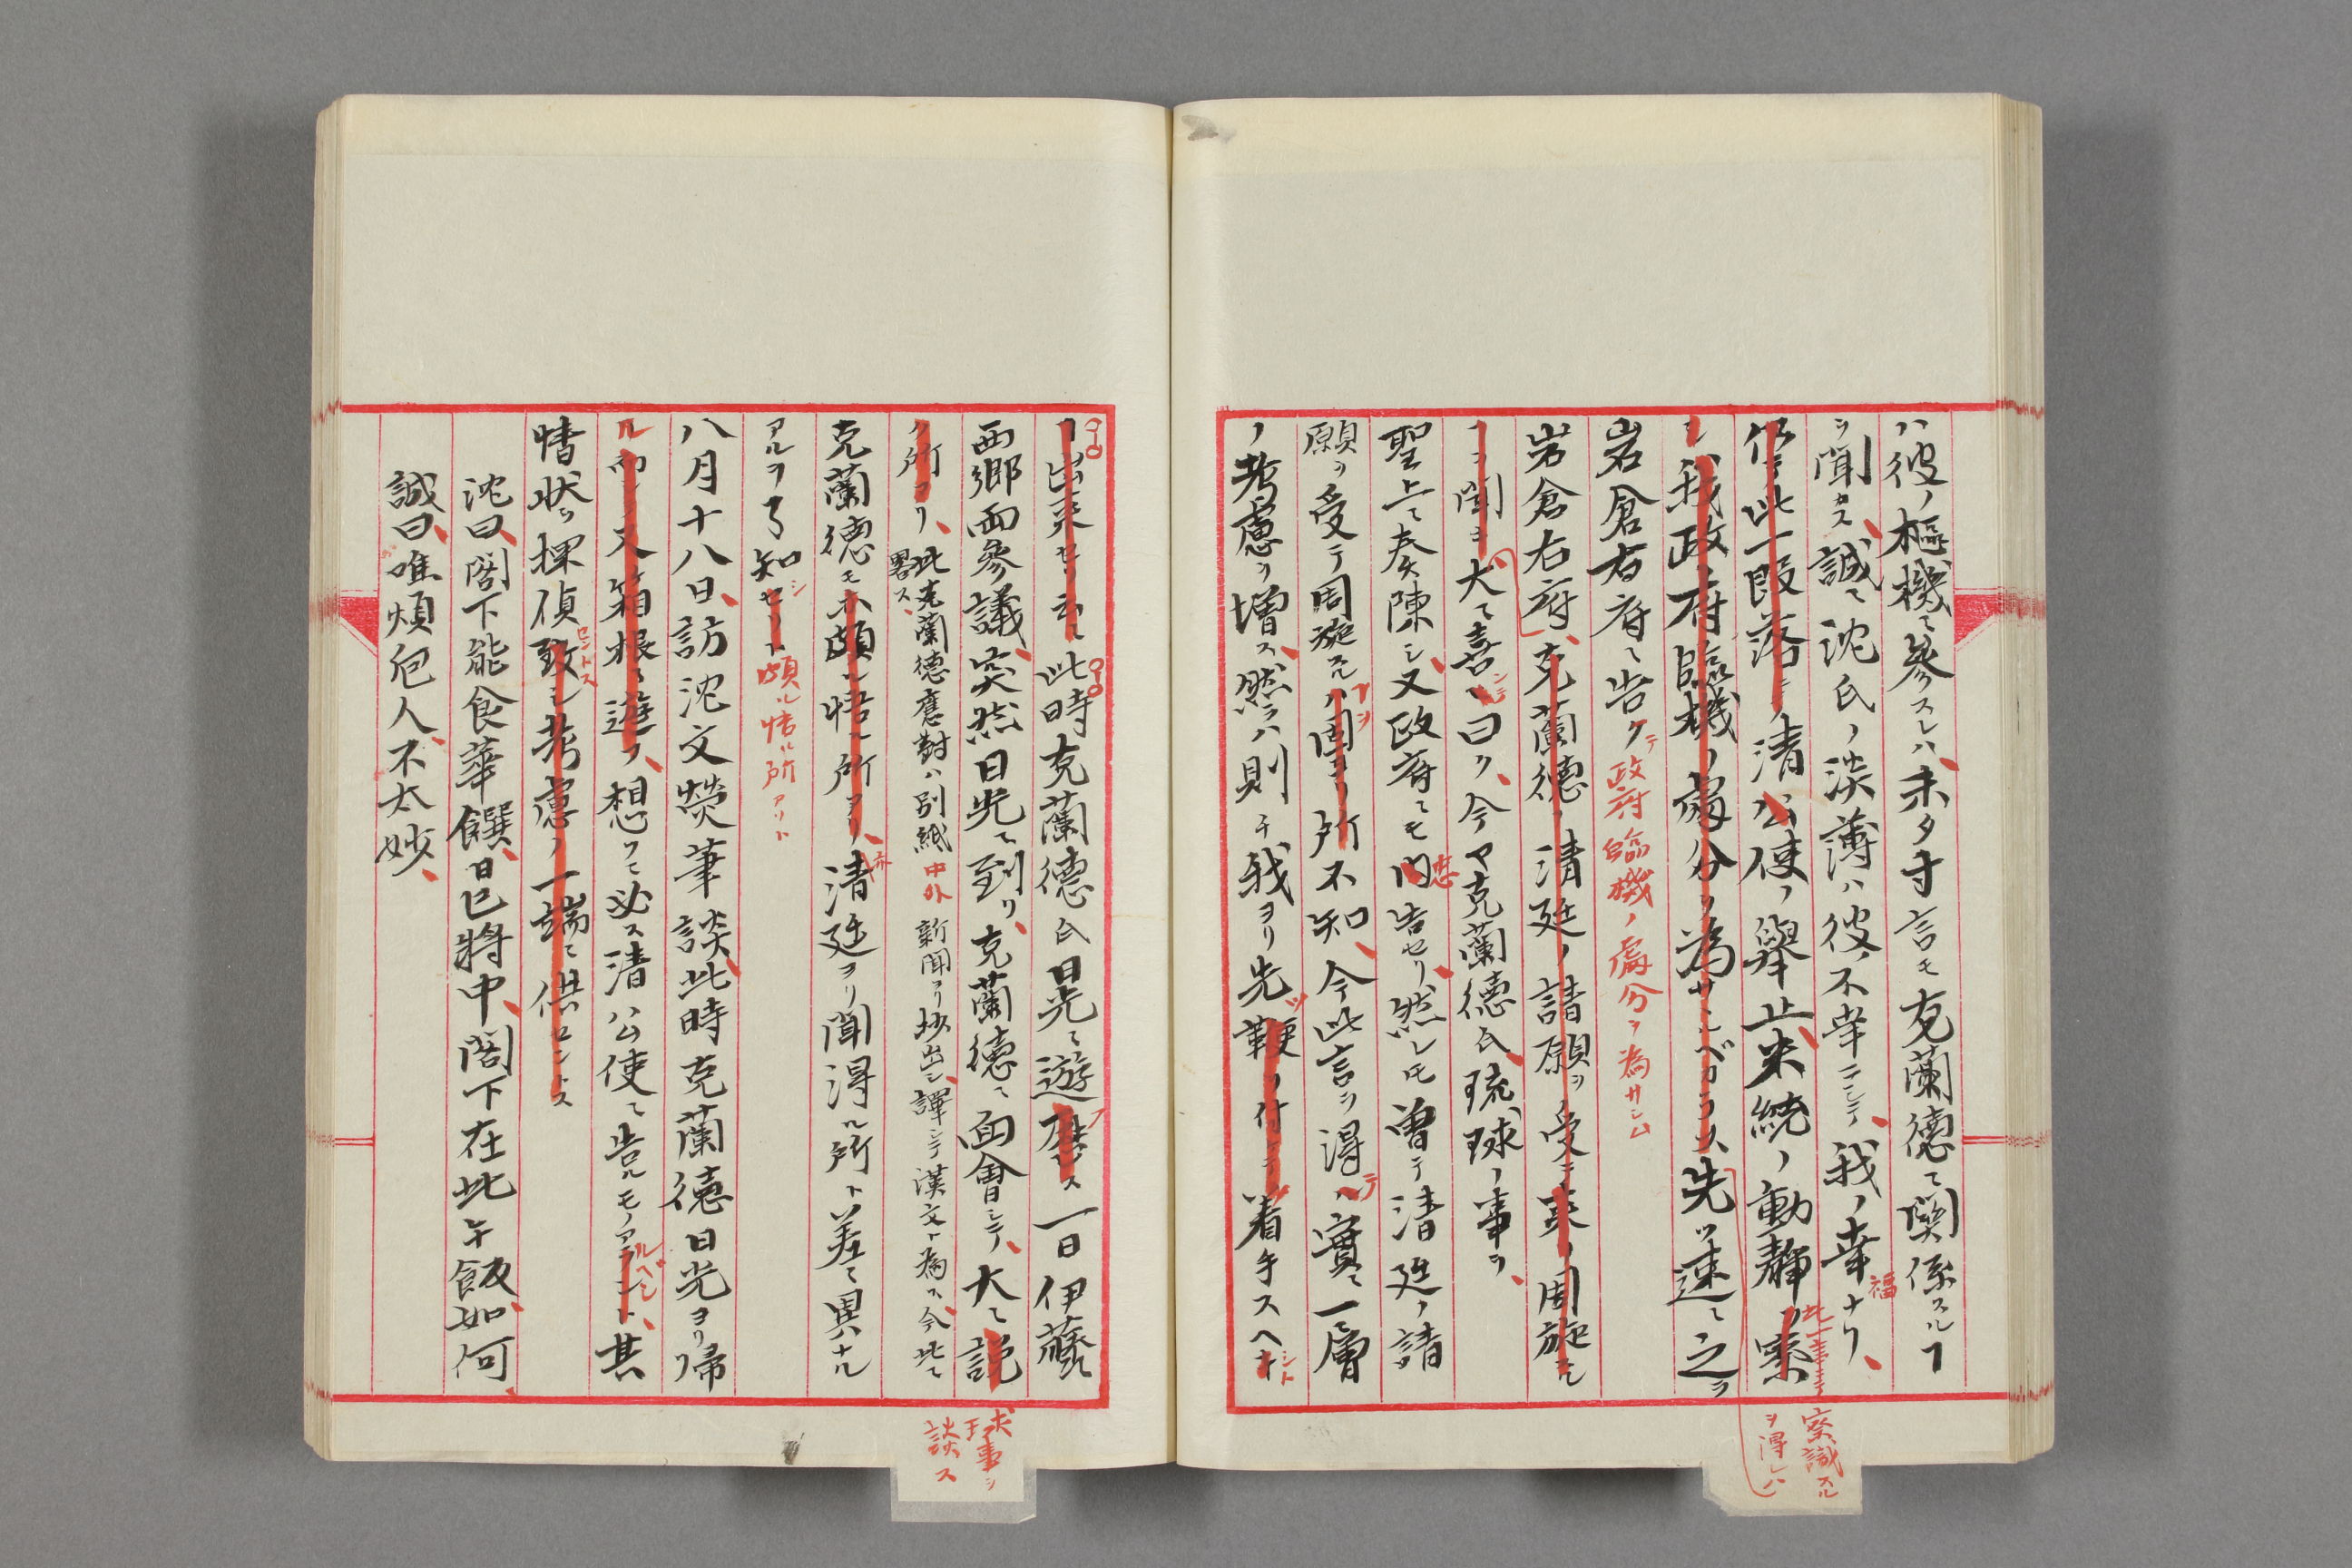 ハ彼ノ樞機ニ參スレハ未タ寸言モ克蘭德ニ関係スルヿ
ヲ聞カス誠ニ沈氏ノ淡薄ハ彼ノ不幸ニシテ我ノ幸ナリ
福
仍テ此一段落ニノ清公使ノ舉止来続ノ動静ヲ察
此一事ニテ察識スルヲ得レハ
シ我政府臨機ノ處分ヲ為サルベカラス先ツ速ニ之ヲ
岩倉右府ニ告ク
テ政府臨機ノ處分ヲ為サシム
岩倉右府克蘭德ノ清廷ノ請願ヲ受テ来ノ周旋スル
ヿヲ聞ヨ大ニ喜ヒ曰ク今マ克蘭德氏琉球ノ事ヲ
シテ
聖上ニ奏陳シ又政府ニモ内告セリ然レモ曽テ清廷ノ請
忠
願ヲ受テ周旋スルハ固ヨリ所不知今此言ヲ得ハ實ニ一層
ヿヲ
テ
ノ考慮ヲ増ス然ラハ則チ我ヨリ先鞭ヲ付ケテ着手スヘキ
ツ
シト
ヿ出来セリ云ニ此時克蘭德氏日光ニ遊歴ス一日伊藤
フ
西郷両參議突然日光ニ到リ克蘭德ニ面會シテ大ニ説
球事ヲ談ス
ク所アリ此克蘭德應對ハ別紙中外新聞ヨリ抄出シ譯シテ漢文ト為ス今此ニ
畧ス
克蘭德モ亦頗ル悟ル所アリ清廷ヨリ聞得ル所ト差ニ異ナル
亦
アルヲ了知セリト
シ
頗ル悟ル所アリト
八月十八日訪沈文熒筆談此時克蘭德日光ヨリ帰
ル而シテ又箱根ニ遊フ想フニ必ス清公使ニ告ルモノアラント其
ルベシ
情状ヲ探偵致シ考慮ノ一端ニ供セントス
セントス
沈曰閣下能食華饌日已將中閣下在此午飯如何
誠曰唯煩庖人不太妙